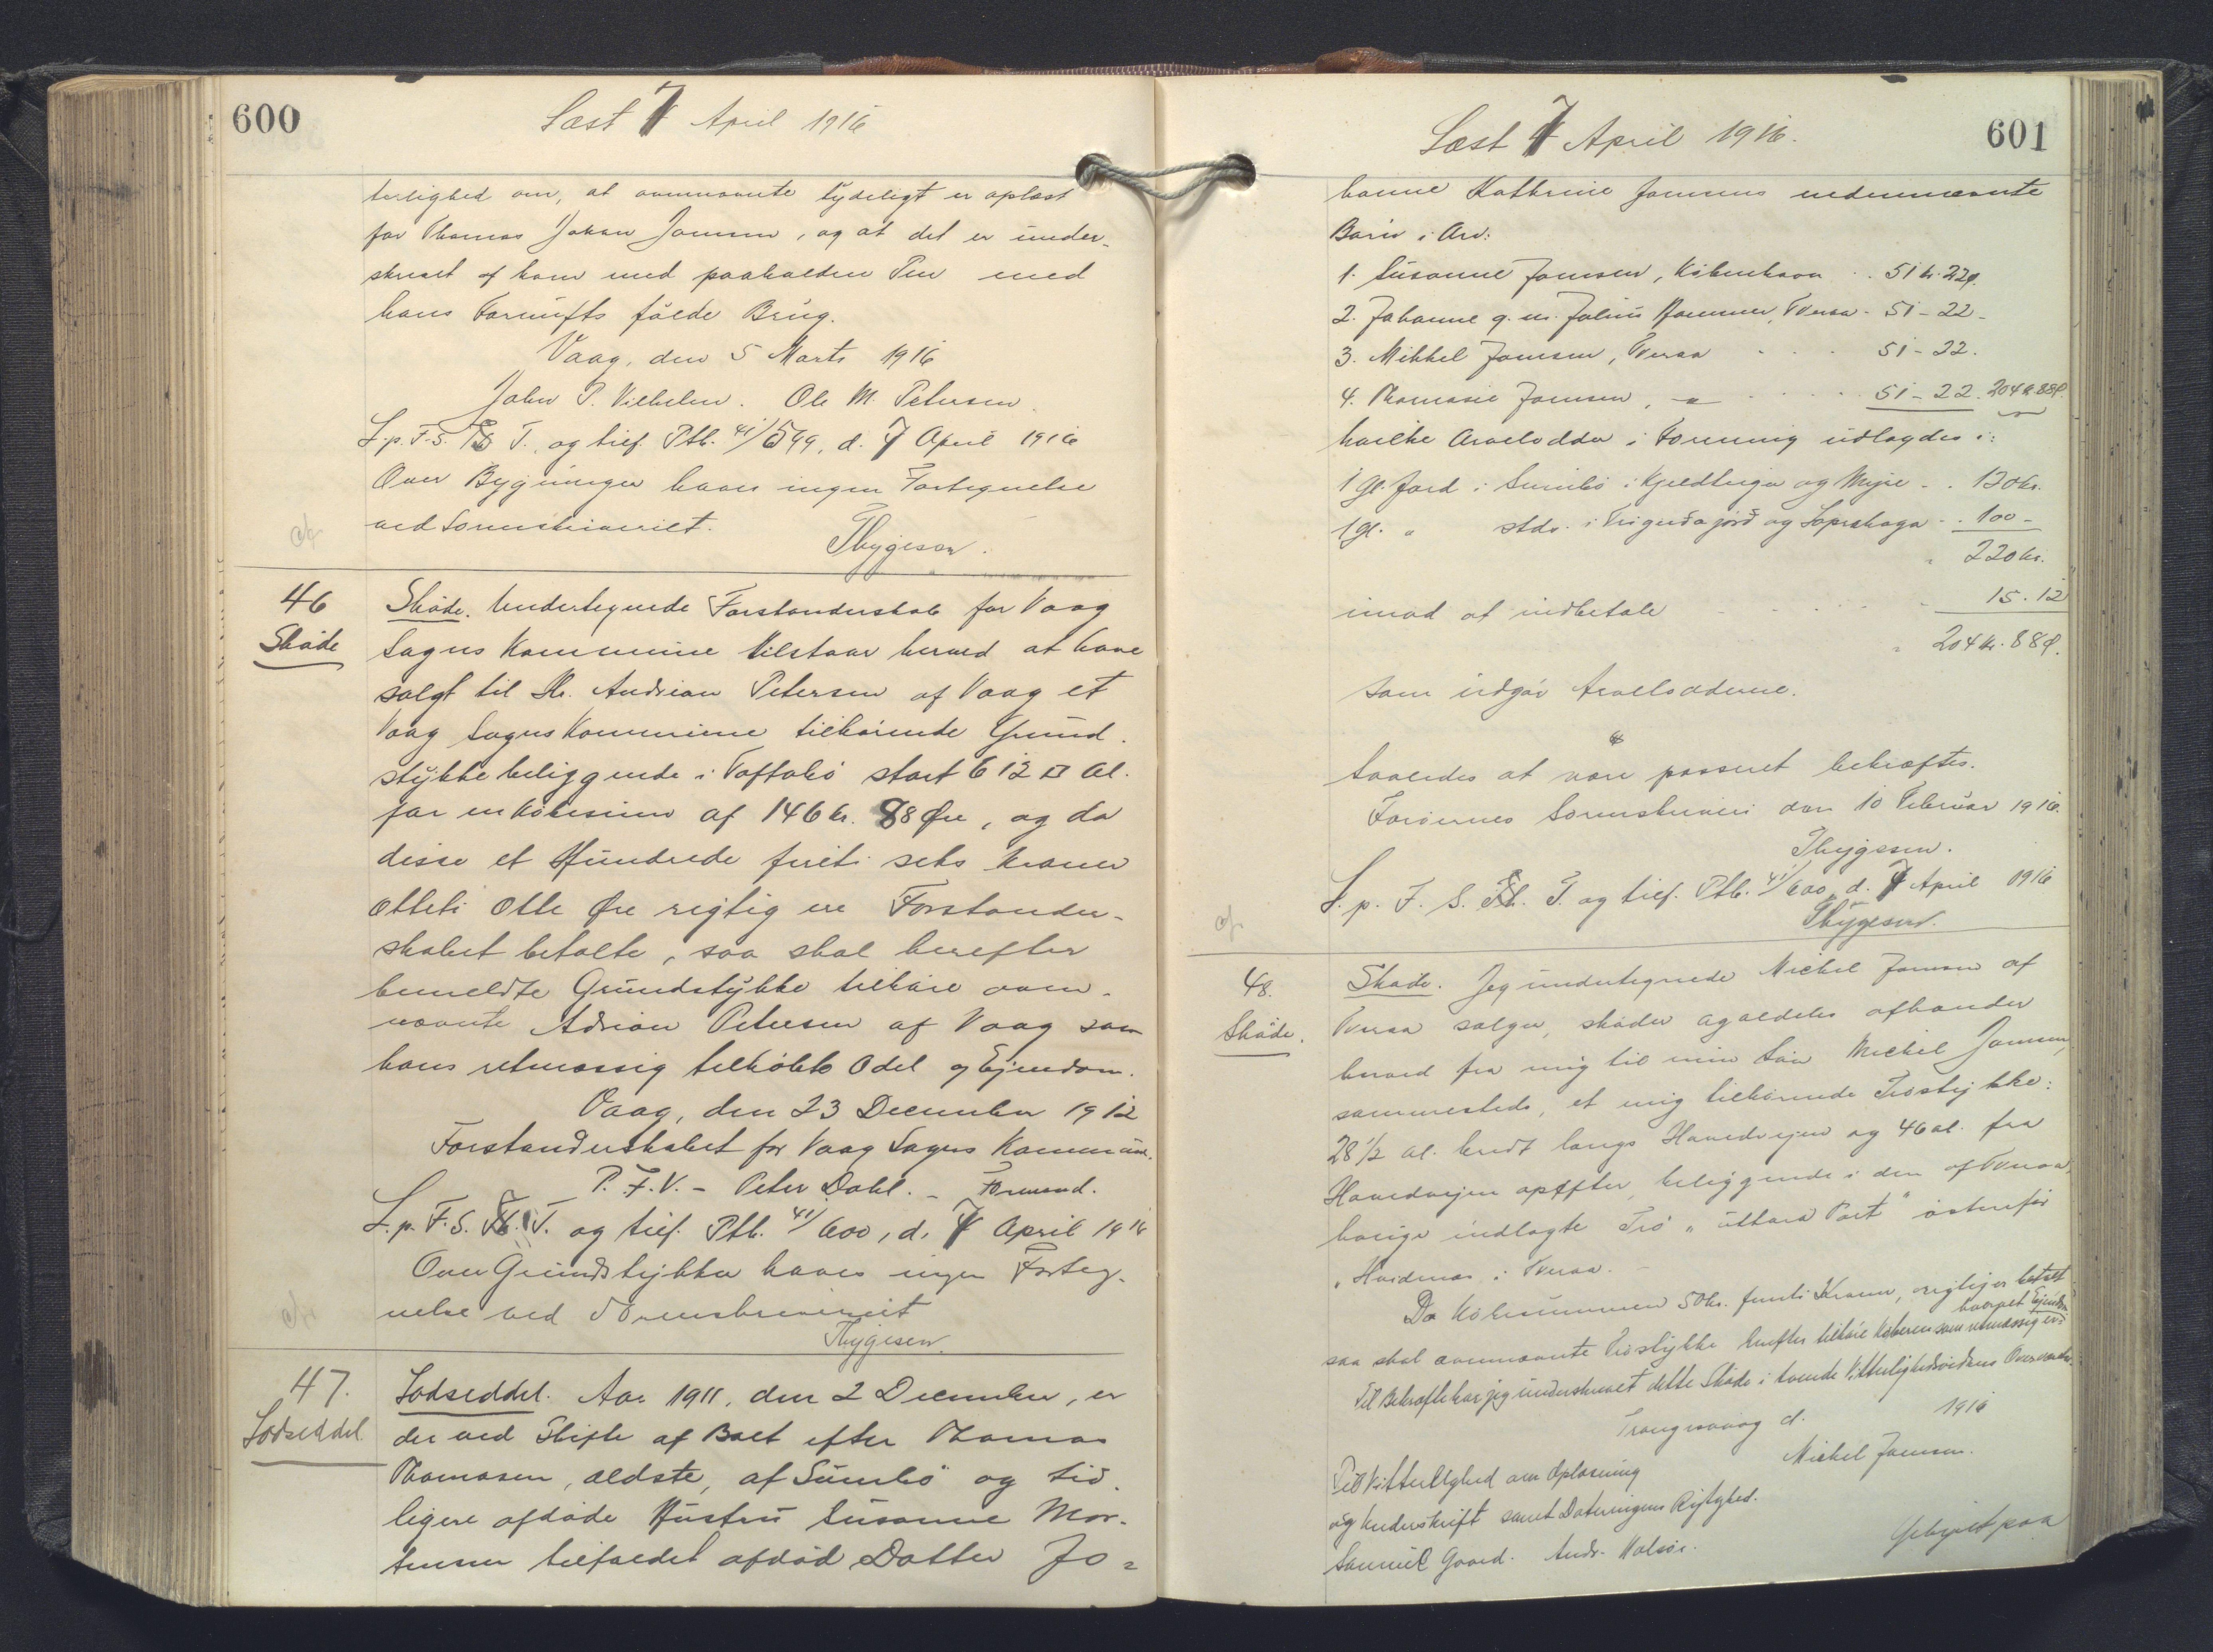 600
Læst 7 April 1916
terlighed om, at ovennævnte tydeligt er oplæst
for Thomas Johan Joensen, og at det er under-
skrevet af ham med paaholden Pen med
hans Fornufts fulde Brug.
Vaag, den 5 Marts 1916
John P. Vilhelm. Ole M. Petersen.
L.p.F.S. T. og tilf. Ptb. 41/599, d. 7 April 1916
Over Bygninger haves ingen Fortegnelse
ved Sorenskriveriet.
Thygesen.
46
Skøde
Skøde. Undertegnede Forstanderskab for Vaag
Sogns Kommune tilstaar herved at have
solgt til Hr. Andrian Petersen af Vaag et
Vaag Sogns Kommune tilhørende Grund-
stykke beliggende i Toftabø stort 612 □ Al.
for en Købesum af 146 kr. 88 Øre, og da
disse et Hundrede fireti seks Kroner
otteti otte Øre rigtig ere Forstander-
skabet betalte, saa skal herefter
bemeldte Grundstykke tilhøre oven-
nævnte Adrian Petersen af Vaag som
hans retmæssig tilkøbte Odel og Ejendom.
Vaag, den 23 December 1912
Forstanderskabet for Vaag Sogns Kommune.
P.F.V. - Peter Dahl. - Formand.
L.p.F.S. T. og tilf. Ptb. 41/600, d. 7 April 1916
Over Grundstykker haves ingen Forteg-
nelse ved Sorenskriveriet
Thygesen.
47.
Lodseddel.
Lodseddel. Aar 1911, den 2 December, er
der ved Skifte af Boet efter Thomas
Thomasen, ældste, af Sumbø og tid-
ligere afdøde Hustru Susanne Mor-
tensen tilfaldet afdød Datter Jo=
601
Læst 7 April 1916.
hanne Kathrine Joensens nedennævnte
Børn i Arv:
1. Susanne Joensen, København . . 51 kr. 22 ø.
2. Johanne g. m. Julius Hammer, Tveraa - 51 - 22 -
3. Mikkel Joensen, Tveraa . . . 51 - 22.
4. Thomasie Joensen, - " - . . . 51 - 22. 204 kr. 88 ø.
hvilke Arvelodder i Forening udlagdes i:
1 Gl. Jord i Sumbø i og Myre . . 120 kr.
1 Gl. " stds. i og . . 100 -
220 kr.
imod at indbetale . . . 15. 12
204 kr. 88 ø.
som udgør Arvelodderne.
Saaledes at være passeret bekræftes.
Færøernes Sorenskriveri den 10 Februar 1916.
Thygesen.
L. p. F. S. T. og tilf. Ptb. 41/600, d. 7 April 1916
Thygesen.
48.
Skøde.
Skøde. Jeg undertegnede Michel Joensen af
Tveraa sælger, skøder og aldeles afhænder
herved fra mig til min Søn Michel Joensen,
sammesteds, et mig tilhørende Trøstykke:
28 1/2 al. bredt langs Hovedvejen og 46 al. fra
Hovedvejen opefter, beliggende i den af Tveraa
Borige indlagte Trø "uttara Part" østenfor
"Hvidenes i Tveraa. -
Da Købesummen 50 kr. femti Kroner, rigtig er betalt
saa skal ovennævnte Trøstykke herefter tilhøre Køberen som retmæssig er-
hvervet Ejendom
Til Bekræfte har jeg underskrevet dette Skøde i tvende Vitterlighedsvidners Overværelse.
Trangisvaag d. 1916
Michel Joensen.
Til Vitterlighed om Oplæsning
og Underskrift samt Dateringens Rigtighed.
Samuel Gaard. Andr. Holsøe.
Gebyret paa